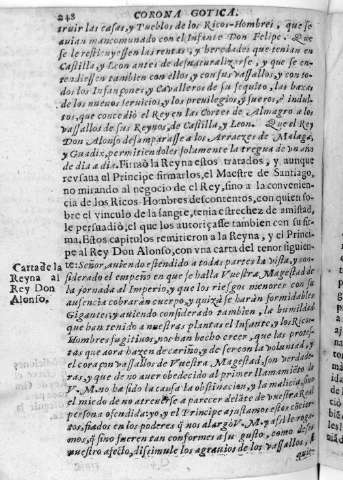 248 CORONA GOTICA.
truir las casas, y Pueblos de los Ricos-Hombres, que se
auian mancomunado con el Infante Don Felipe. Que
se le restituyessen las rentas, y heredades que tenian en
Castilla, y Leon antes de desnaturalizarse, y que se en-
tendiessen tambien con ellos, y con sus vassallos, y con to-
dos los Infançones, y Cavalleros de su sequito, las baxas
de los nueuos seruicios, y los preuilegios, y fueros, è indul-
tos, que concediò el Rey en las Cortes de Almagro a los
vassallos de sus Reynos, de Castilla, y Leon. Que el Rey
Don Alonso desamparasse a los Arraezes de Malaga,
y Guadix, permitiendoles solamente la tregua de vn año
de dia a dia. Firmò la Reyna estos tratados, y aunque
reusaua el Principe firmarlos, el Maestre de Santiago,
no mirando al negocio de el Rey, sino a la convenien-
cia de los Ricos-Hombres descontentos, con quien so-
bre el vinculo de la sangre, tenia estrechez de amistad,
le persuadiò, el que los autoriçasse tambien con su fir-
ma. Estos capitulos remitieron a la Reyna, y el Princi-
pe al Rey Don Alonso, con vna carta del tenor siguien-
Carta de la
Reyna al
Rey Don
Alonso.
te: Señor, auiendo estendido à todas partes la vista, y con-
siderado el empeño en que se halla Vuestra Magestad de
la jornada al Imperio, y que los riesgos menores con su
ausencia cobraràn cuerpo, y quizà se haràn formidables
Gigantes; y auiendo considerado tambien, la humildad
que han tenido a nuestras plantas el Infante, y los Ricos-
Hombres fugitiuos, nos han hecho creer, que las protes-
tas que aora hazen de cariño, y de ser con la voluntad, y
el coraçon vassallos de Vuestra Magestad, son verdade-
ras, y que de no auer obedecido al primer llamamiẽto de
V. M. no ha sido la causa la obstinacion, y la malicia, sino
el miedo de no atreuerse a parecer delãte de vuestra Real
persona ofendida: yo, y el Principe ajustamos estos concier-
tos, fiados en los poderes q̃ nos alargò V. M. y assi le roga-
mos, q̃ sino fueren tan conformes a su gusto, como desea
nuestro afecto, disimule los agrauios de los vassallos,